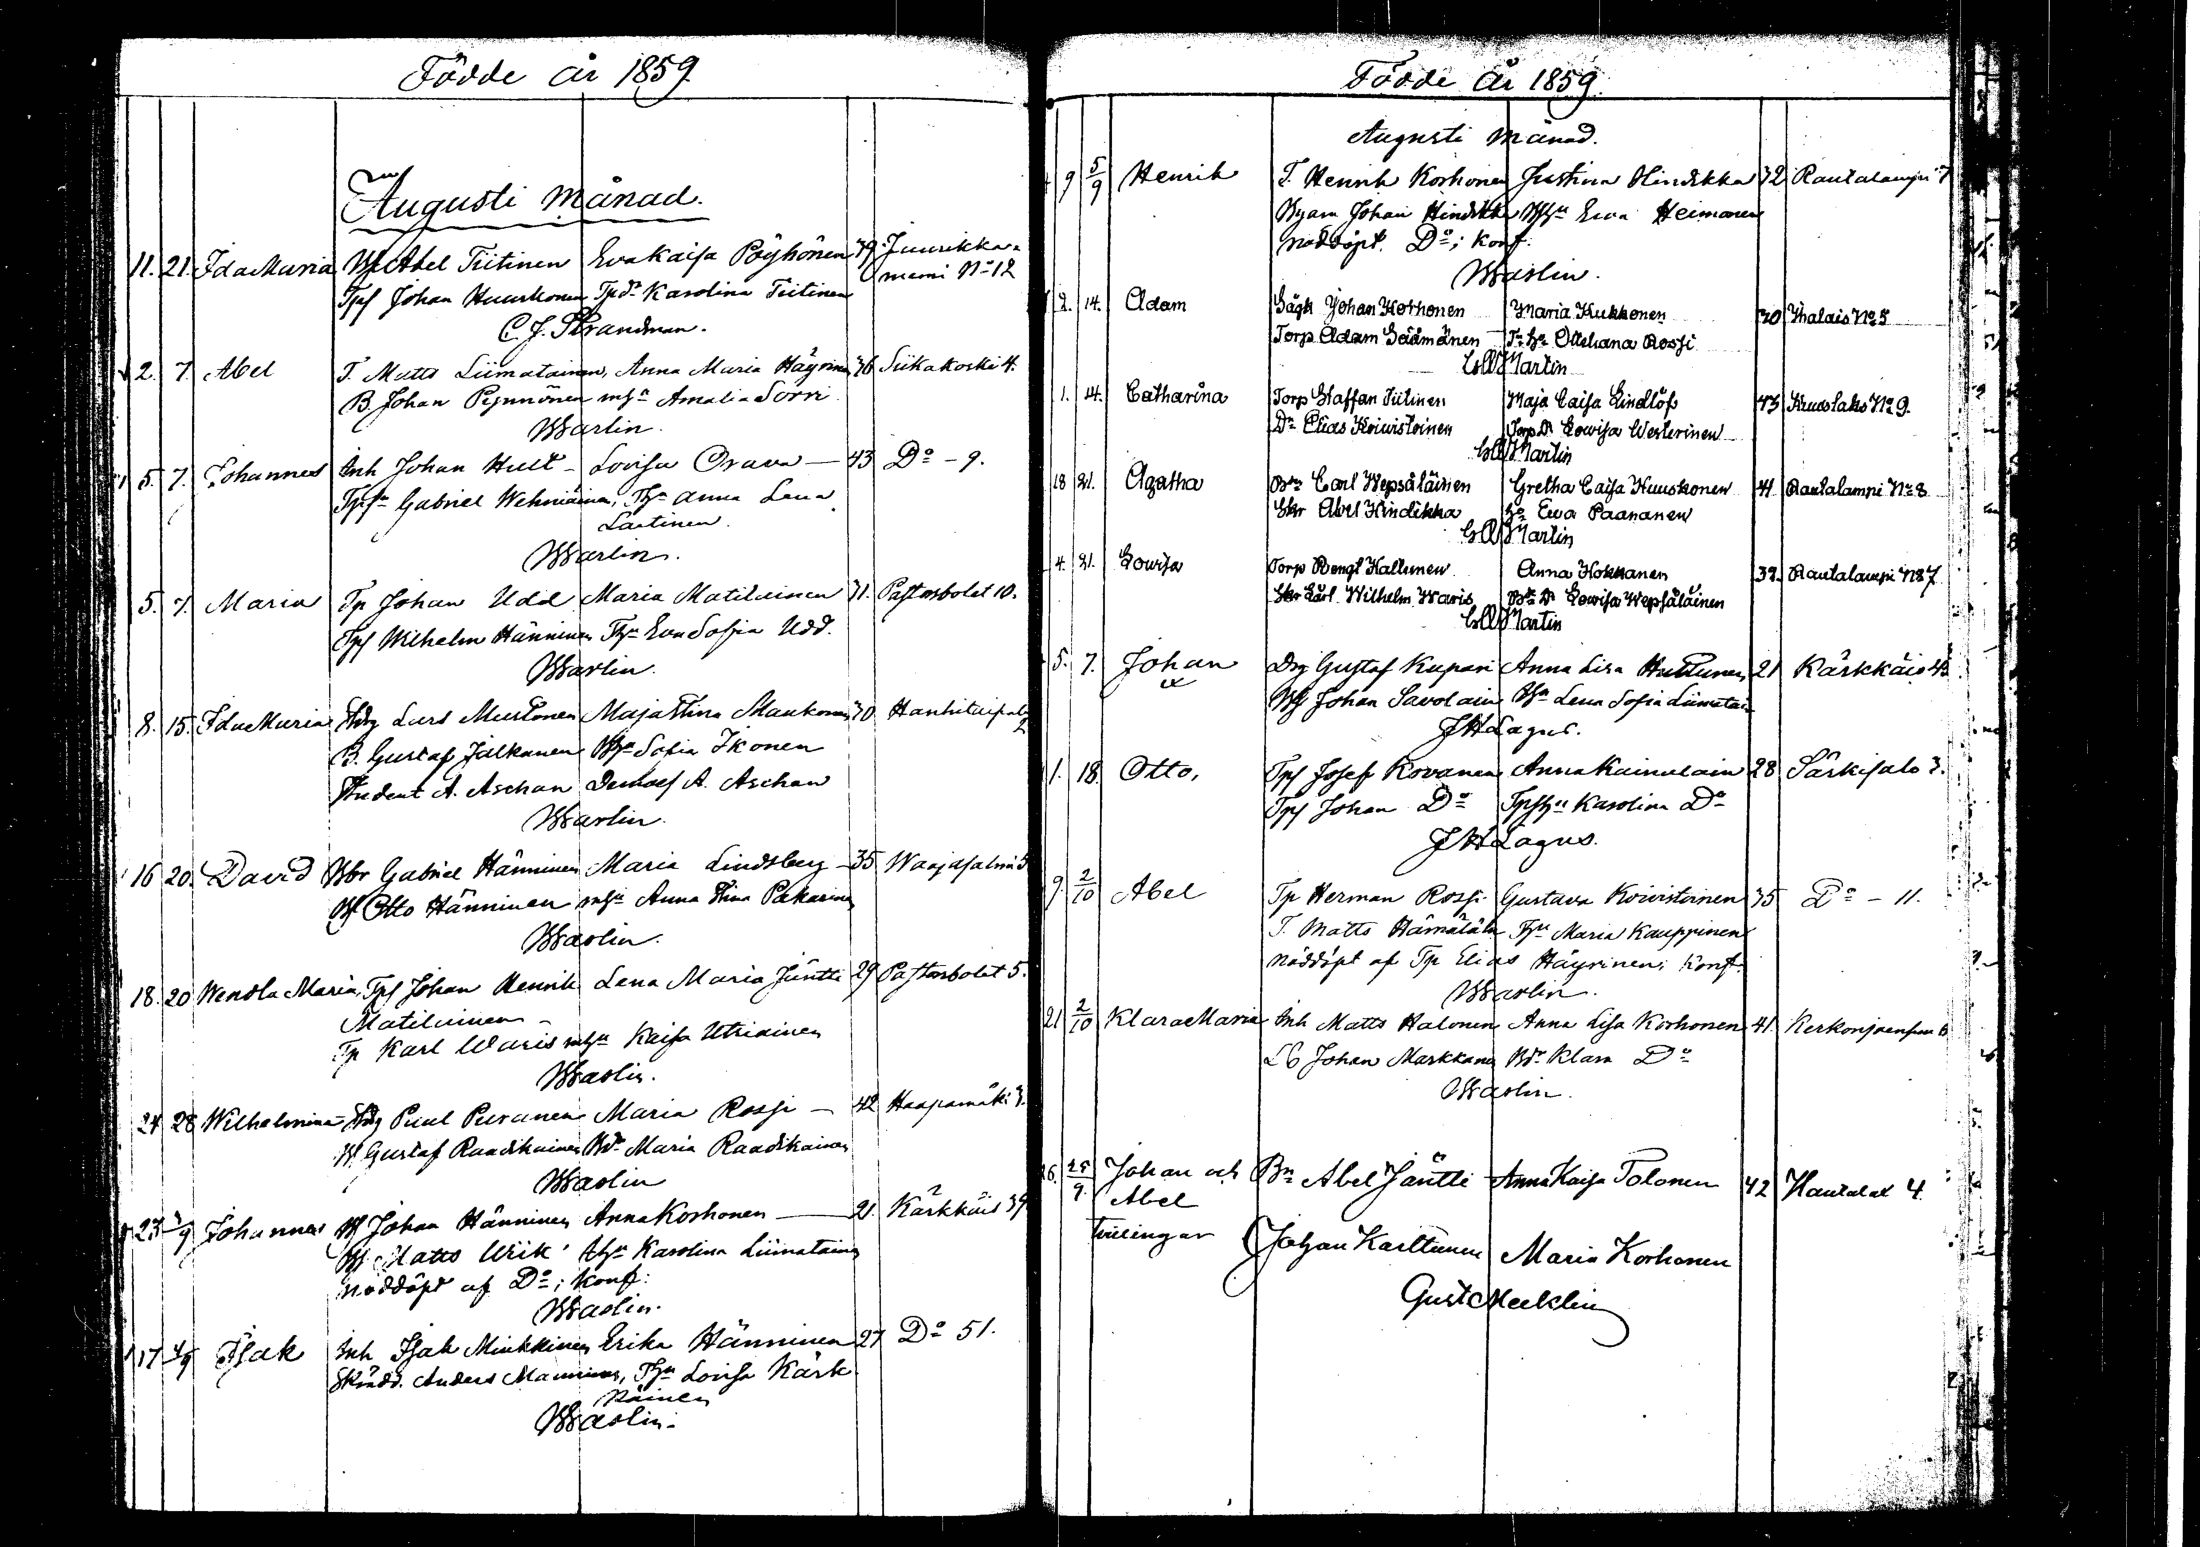 Födde år 1859
Augusti månad.
11. 21. Ida Maria Abel Tiitinen Eva Kaisa Pöyhönen 39 Juurikka-
niemi No 12
Tpf Johan Huuskonen Tpdr Karolina Tiitinen
C. J. Strandman.
2. 7. Abel T. Matts Liimatainen, Anna Maria Häyrinen 36 Siikakoski 4.
B. Johan Pynnönen mhu Amalia Sorri
Warlin.
5. 7. Johannes Inh Johan Hult - Lovisa Orava — 43 Do - 9.
Gabriel Wehniäinen, Thu Anna Lena
Laitinen.
Warlin.
5. 7. Maria Tp Johan Udd Maria Matilainen 31. Pastorbolet 10.
Tpf Wilhelm Hänninen Thu Eva Sofia Udd.
Warlin.
8. 15. Ida Maria Lars Mustonen Maja Stina Maukonen 30 Hanhitaipale
2
B. Gustaf Jalkanen Bhu Sofia Ikonen
Student A. Aschan A. Aschan
Warlin.
16 20. David Bbr Gabriel Hänninen Maria Lindsberg - 35 Waajasalmi 5
Bf Otto Hänninen mhu Anna Stina Pakarinen
Warlin.
18. 20 Wendla Maria, Tpf Johan Henrik Lena Maria Jäntti 29 Pastorbolet 5.
Matilainen -
Tp Karl Waris mhu Kaisa Utriainen
Warlin.
24 28 Wilhelmina Paul Puranen Maria Rossi — 42 Haapamäki 3.
Bf Gustaf Raadikainen Bdr Maria Raadikainen
Warlin
23 4/9 Johannes Bf Johan Hänninen Anna Korhonen — 21. Kärkkäis 39
Bf Matts Urik Thu Karolina Liimatainen
nöddöpt af Do; konf:
Warlin.
17 4/9 Isak Inh Isak Minkkinen Erika Hänninen 27 Do 51.
Anders Manninen, Thu Lovisa Kärk-
käinen
Warlin.
Födde År 1859.
Augusti Månad.
9 5/9 Henrik T. Henrik Korhonen Justina Hindikka 32 Rautalampi 7
Johan Hindikka Bhu Eva Heimonen
nöddöpt. Do; konf:
Warlin.
2. 14. Adam Johan Korhonen Maria Kukkonen 30 No 5
Torp Adam Säämänen Ottiliana Rossi
Martin
1. 14. Catharina Torp Staffan Tiitinen Maja Caisa Lindlöf 43 No 9.
Do Elias Koivistoinen Torp Dr Lowisa Westerinen
Martin
18 21. Agatha Carl Wepsäläinen Gretha Caisa Huuskonen 41 Rautalampi No 8
Abel Hindikka hu Ewa Paananen
Martin
4. 21. Lowisa Torp Bengt Hallunen Anna Hokkanen 39. Rautalampi No 7
Carl Wilhelm Waris Lowisa Wepsäläinen
Martin
5. 7. Johan Drg Gustaf Kupari Anna Lisa Huttunen 21 Kärkkäis 43
Bf Johan Savolain Bhu Lena Sofia Liimatain
J H Lagus.
1. 18. Otto, Tpf Josef Kovanen Anna Kainulain 28 Särkisalo 3.
Tpf Johan Do Tpfhu Karolina Do
J H Lagus.
9 2/10 Abel Tp Herman Rossi Gustava Koivistoinen 35 Do - 11.
T. Matts Hämäläin Thu Maria Kauppinen
nöddöpt af Tp Elias Häyrinen; konf.
Warlin.
21 2/10 Klara Maria Inh Matts Halonen Anna Lisa Korhonen 41. Kerkonjoensuu 6
Johan Markkanen Bdr Klara Do
Warlin.
26. 25/9. Johan och Bn Abel Jäntti Anna Kaisa Tolonen 42 Hautalax 4.
Abel
tvillingar Johan Karttunen Maria Korhonen
Gust Mecklin